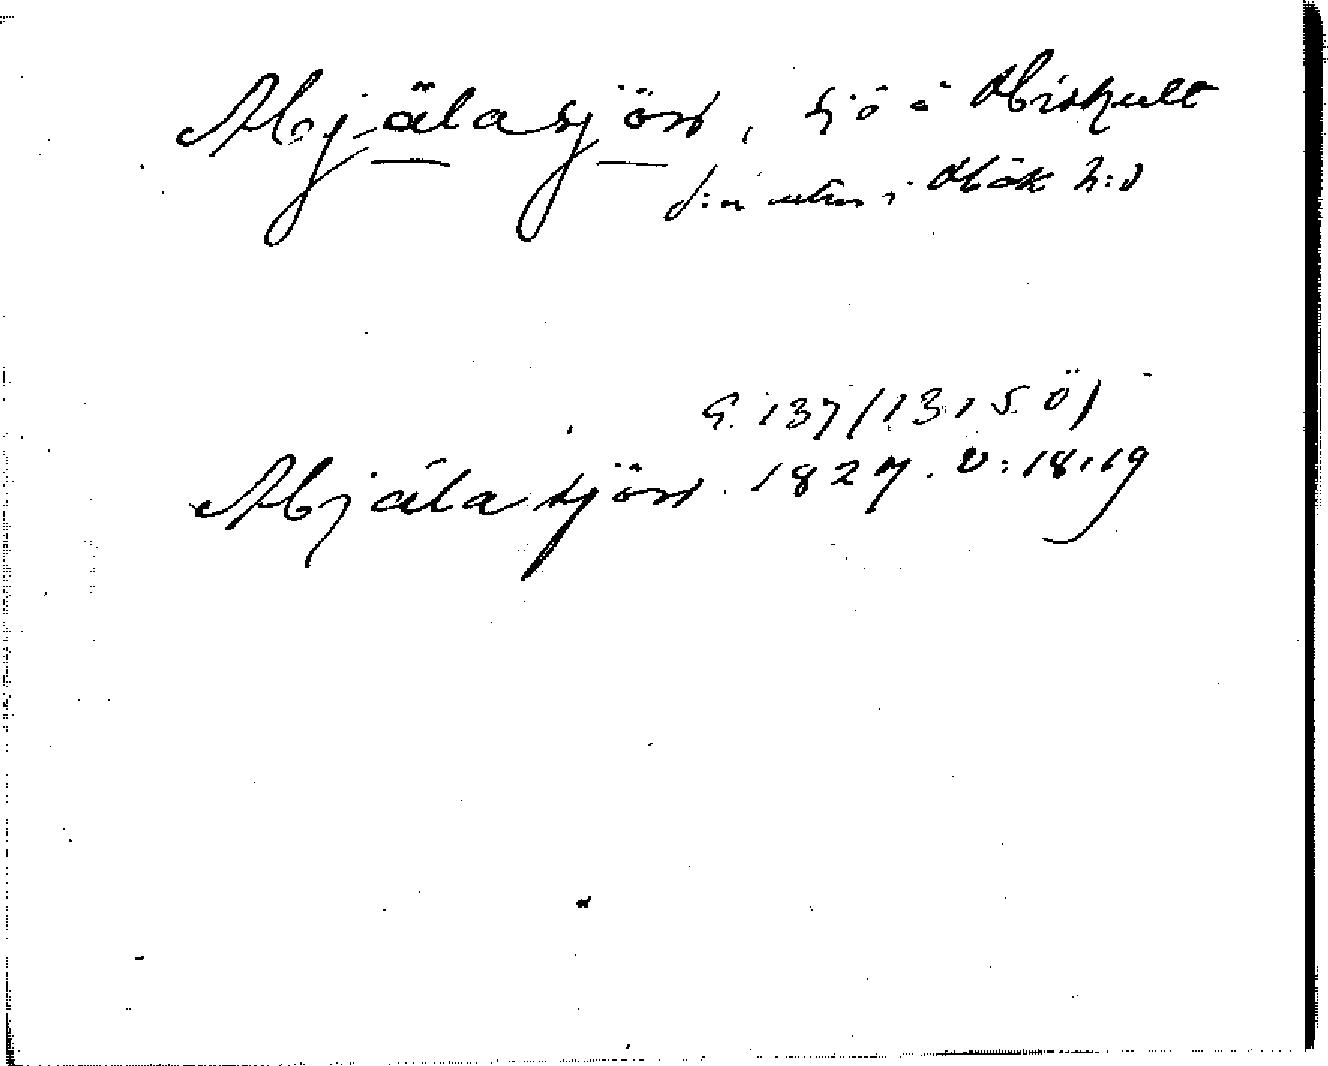 Hjälasjön, sjö å Hishult
s:n utm i Hök h:d
G. 137 (13, 5 ö)
Hjälasjön. 1827. v: 18, 19